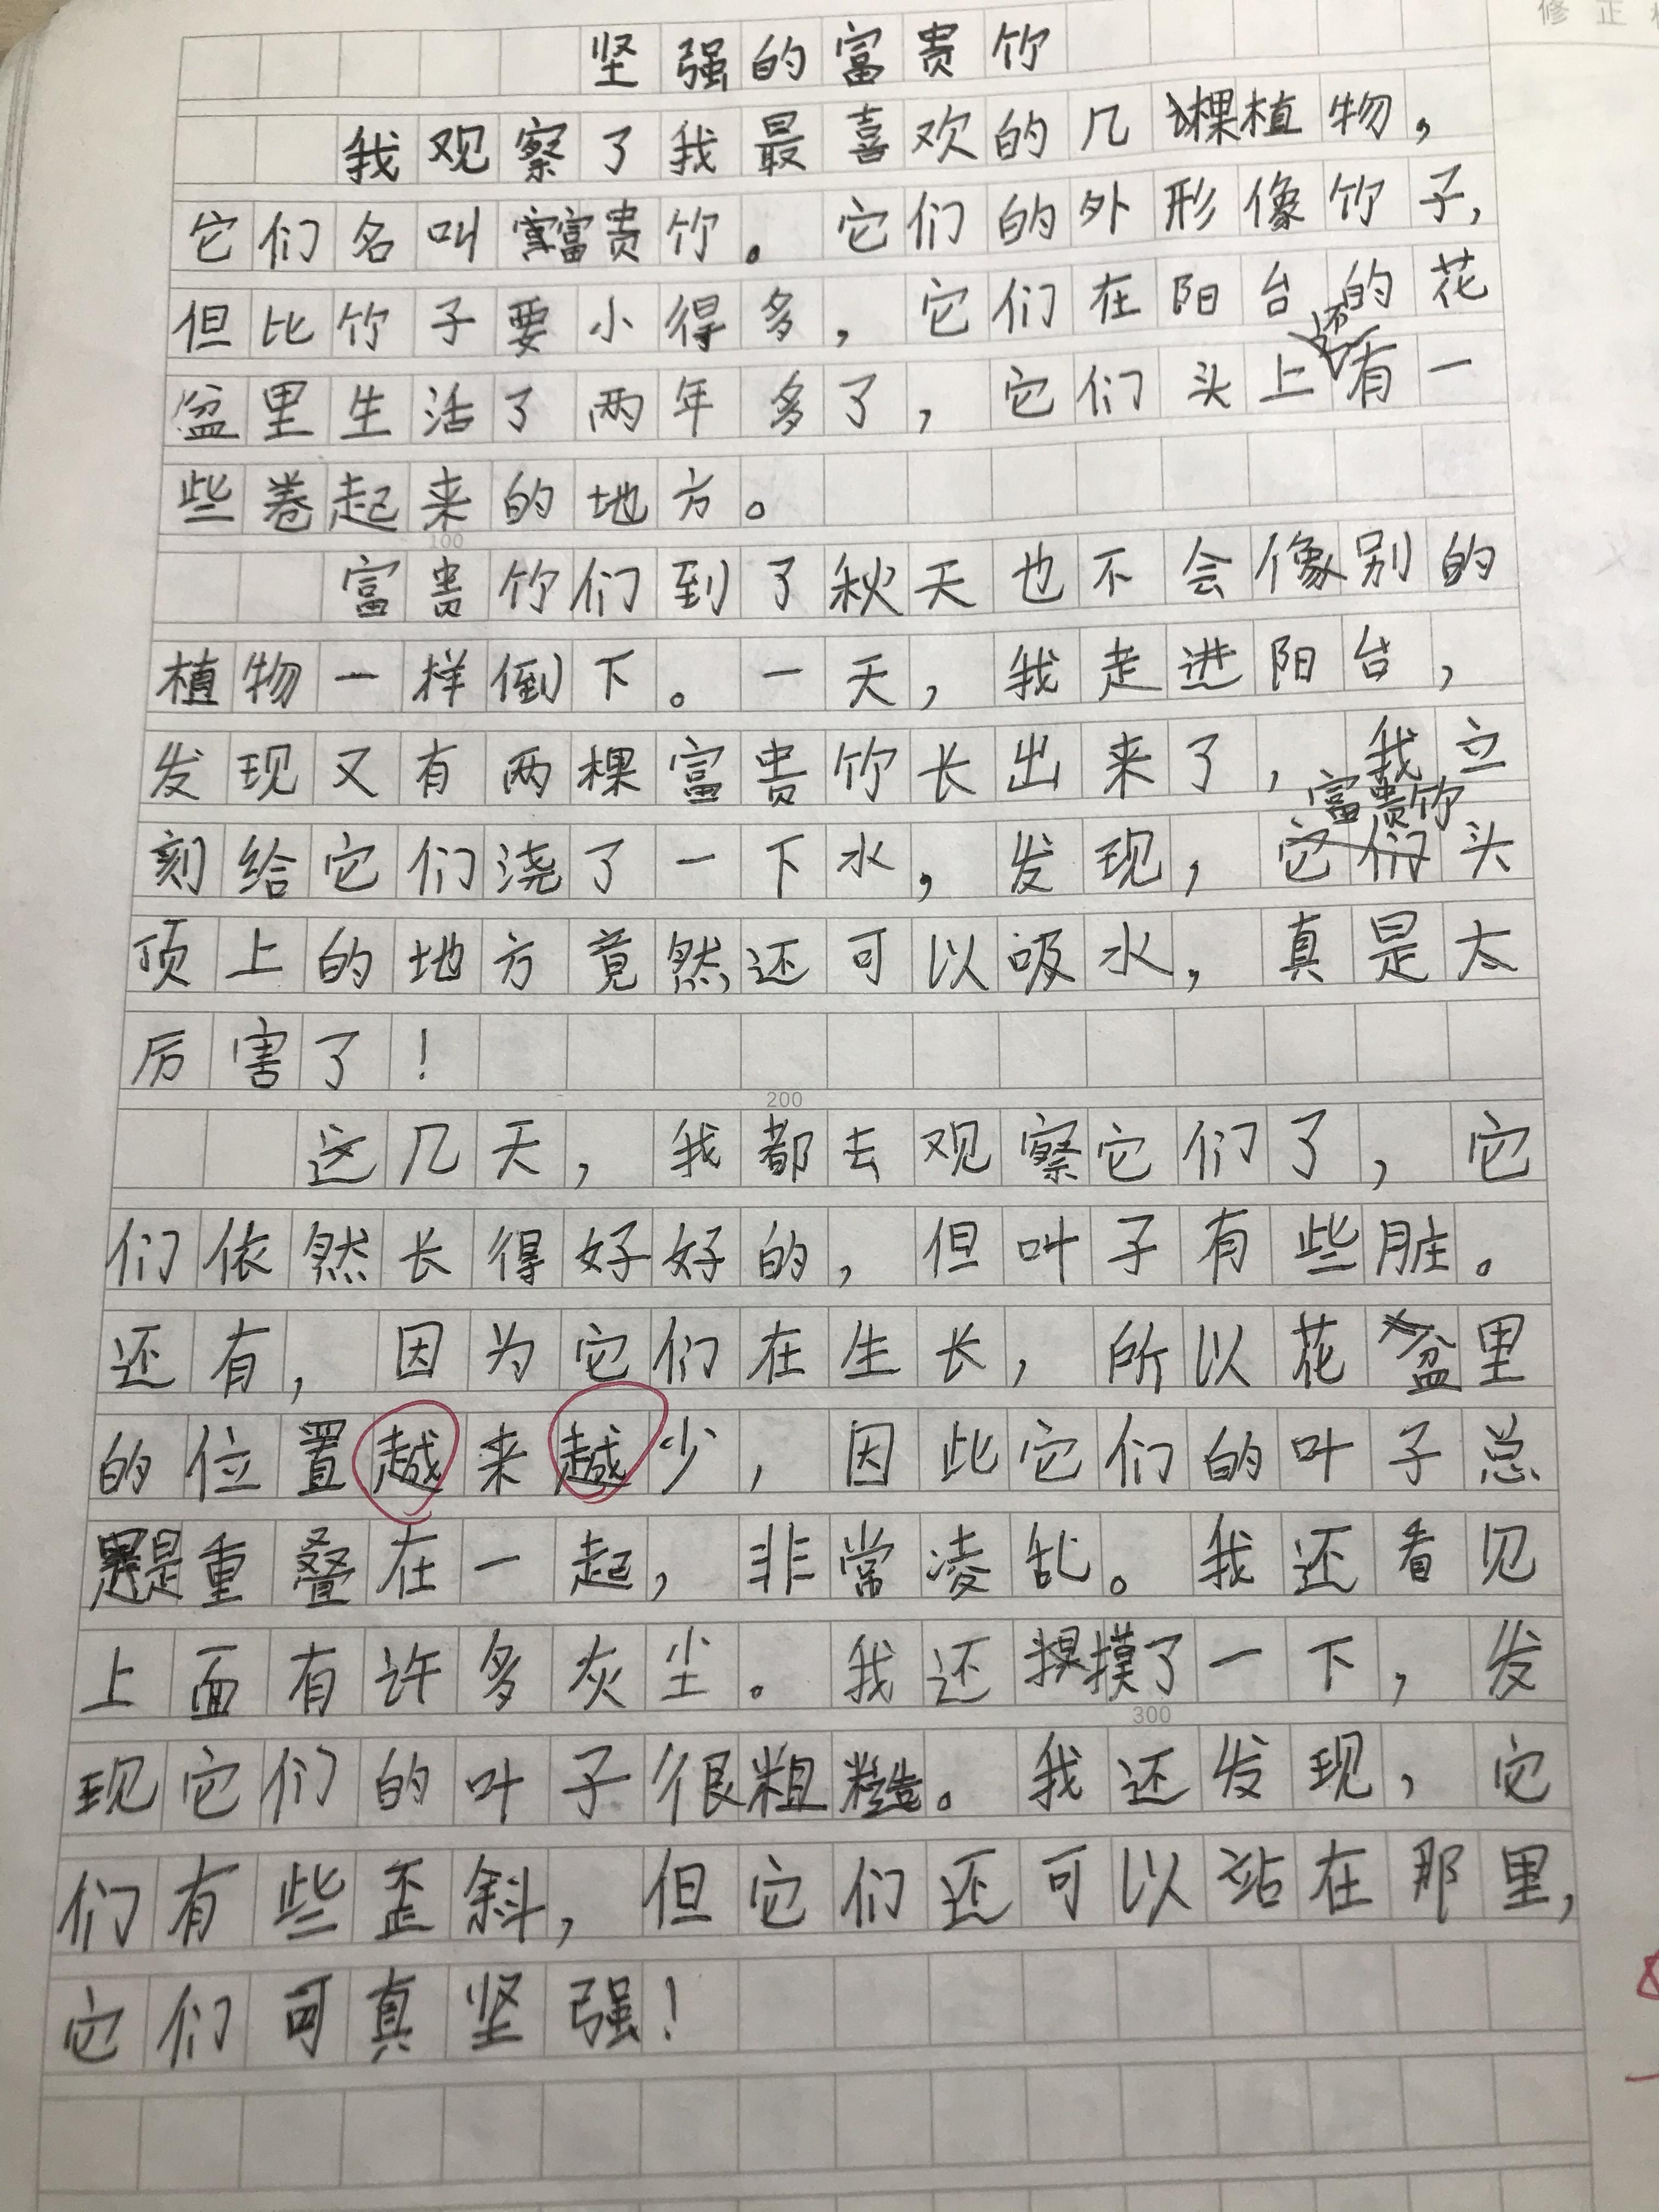 修正
坚强的富贵竹
我观察了我最喜欢的几棵植物，
它们名叫富贵竹。它们的外形像竹子，
但比竹子要小得多，它们在阳台的花
盆里生活了两年多了，它们头上还有一
些卷起来的地方。
100
富贵竹们到了秋天也不会像别的
植物一样倒下。一天，我走进阳台，
发现又有两棵富贵竹长出来了，我立
刻给它们浇了一下水，发现，富贵竹头
顶上的地方竟然还可以吸水，真是太
厉害了！
200
这几天，我都去观察它们了，它
们依然长得好好的，但叶子有些脏。
还有，因为它们在生长，所以花盆里
的位置越来越少，因此它们的叶子总
是重叠在一起，非常凌乱。我还看见
上面有许多灰尘。我还摸了一下，发
300
现它们的叶子很粗糙。我还发现，它
们有些歪斜，但它们还可以站在那里，
它们可真坚强！